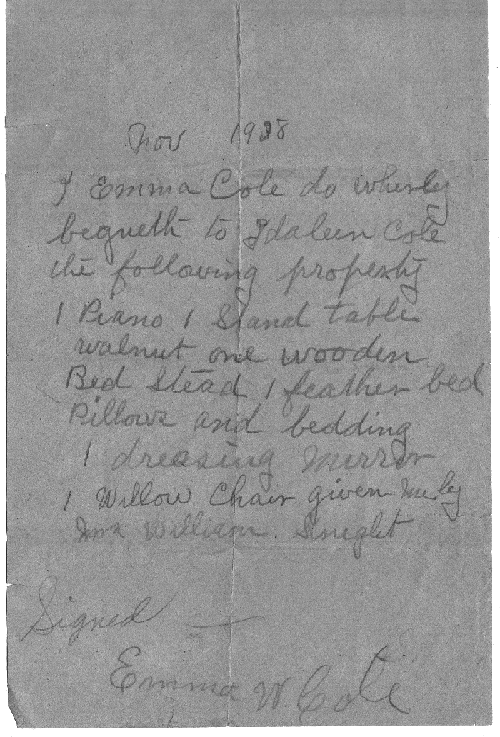 Nov 1928
I Emma Cole do wherly
begueth to Idaleen Cole
the following property
1 Piano 1 Stand table
walnut one wooden
Bed stead 1 feather bed
Pillows and bedding
1 dressing mirror
1 Willow Chair given me by
William
Signed
Emma W Cole